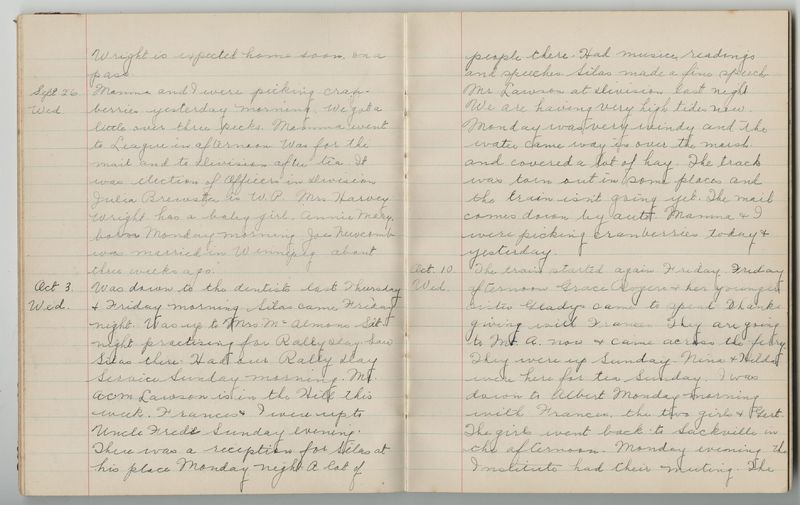 Wright is expected home soon, on a
pass.
Sept 26. Mamma and I were picking crap-
Wed. berries yesterday morning. We got a
little over three pecks. Mamma went
to League in afternoon Was for the
mail and to division after tea. It
was election of Officers in division
Julia Brewster is W.P. Mrs. Harvey
Wright has a baby girl, Annie Mary,
born Monday morning. Joe Newcomb
was married in Winnipeg about
three weeks ago.
Oct 3. Was down to the dentists last Thursday
Wed. & Friday morning. Silas came Friday
night. Was up to Mrs Mc Almons Sat.
night practising for Rally day. Saw
Silas there. Had our Rally day
Service Sunday morning. Mr.
Lawson is in the Hill this
week. Frances & I were up to
Uncle Freds Sunday evening.
There was a reception for Silas at
his place Monday night. A lot of
people there. Had music, readings
and speeches. Silas made a fine speech
Mr. Lawson at division last night
We are having very high tides now.
Monday was very windy and the
water came way in over the marsh
and covered a lot of hay. The track
was torn out in some places and
the train isnt going yet. The mail
comes down by auto. Mamma & I
were picking cranberries today &
yesterday.
Oct. 10 The train started again Friday. Friday
Wed. afternoon Grace & her younger
sister Gladys came to spend Thanks-
giving with Frances. They are going
to Mt. A. now & came across the ferry.
They were up Sunday. Nina & Hilda
were here for tea Sunday. I was
down to Albert Monday morning
with Frances, the two girls & Bert.
The girls went back to Sackville in
the afternoon. Monday evening the
Institute had their meeting. The